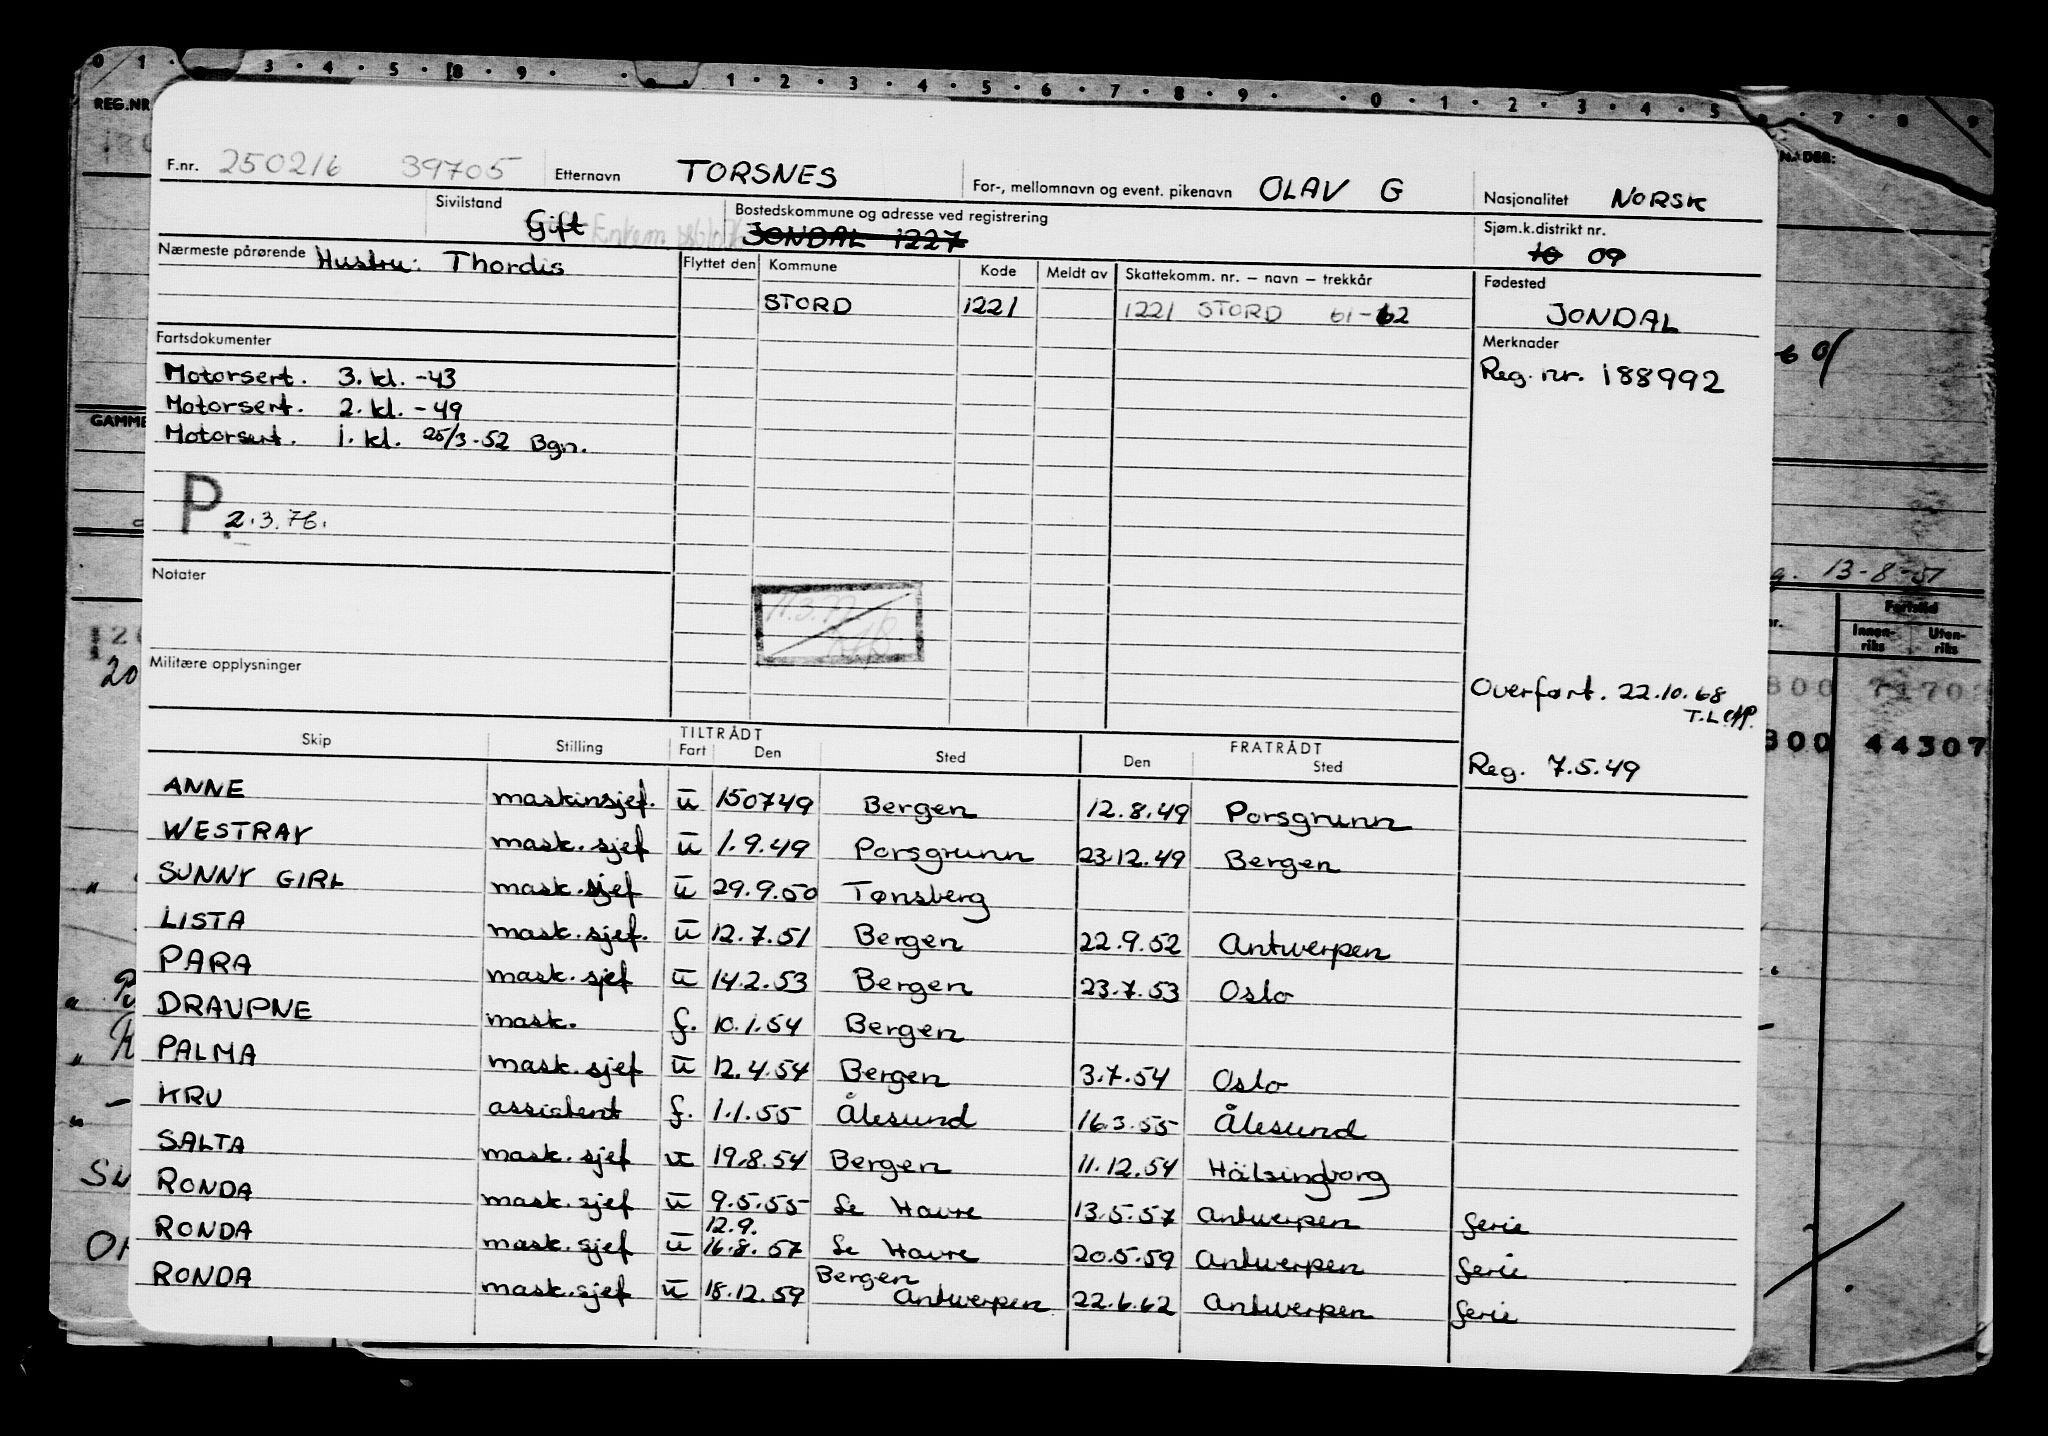 0 1 · 3 · 4 · 5 · 8 · 9 · · 1 · 2 · 3 · 4 · 5 · 6 · 7 · 8 · 9 · · 0 · 1 · 2 · 3 · 4 · 5 · 7 · 8 · 9
REG.NR
F.nr. 250216 39705 Etternavn TORSNES For-, mellomnavn og event. pikenavn OLAV G Nasjonalitet NORSK
Sivilstand Gift Enkem Bostedskommune og adresse ved registrering JONDAL 1227 Sjøm.k.distrikt nr. 10 09
Nærmeste pårørende Hustru: Thordis Flyttet den Kommune Kode Meldt av Skattekomm. nr. – navn – trekkår Fødested
STORD 1221 1221 STORD 61-62 JONDAL
Fartsdokumenter Merknader
Motorsert. 3. kl. -43 Reg. nr. 188992
Motorsert. 2. kl. -49
GAMME Motorsert. 1. kl. 25/3-52 Bgn.
P 2.3.76.
Notater 13-8-51
11.3.77
Fartstid
Innen-riks Uten-riks
Militære opplysninger
20
Overført. 22.10.68
T.L
800 44307
Skip Stilling TILTRÅDT Fart Den Sted FRATRÅDT Den Sted
Reg. 7.5.49
ANNE maskinsjef. u 150749 Bergen 12.8.49 Porsgrunn
WESTRAY mask.sjef u 1.9.49 Porsgrunn 23.12.49 Bergen
SUNNY GIRL mask.sjef u 29.9.50 Tønsberg
LISTA mask.sjef. u 12.7.51 Bergen 22.9.52 Antwerpen
PARA mask.sjef u 14.2.53 Bergen 23.7.53 Oslo
DRAUPNE mask. f. 10.1.54 Bergen
PALMA mask.sjef u 12.4.54 Bergen 3.7.54 Oslo
KRU assistent f. 1.1.55 Ålesund 16.3.55 Ålesund
SALTA mask.sjef u 19.8.54 Bergen 11.12.54 Hälsingborg
RONDA mask.sjef u 9.5.55 Le Havre 13.5.57 Antwerpen ferie
RONDA mask.sjef u 12.9. 16.8.57 Le Havre 20.5.59 Antwerpen ferie
RONDA mask.sjef u 18.12.59 Bergen Antwerpen 22.6.62 Antwerpen ferie